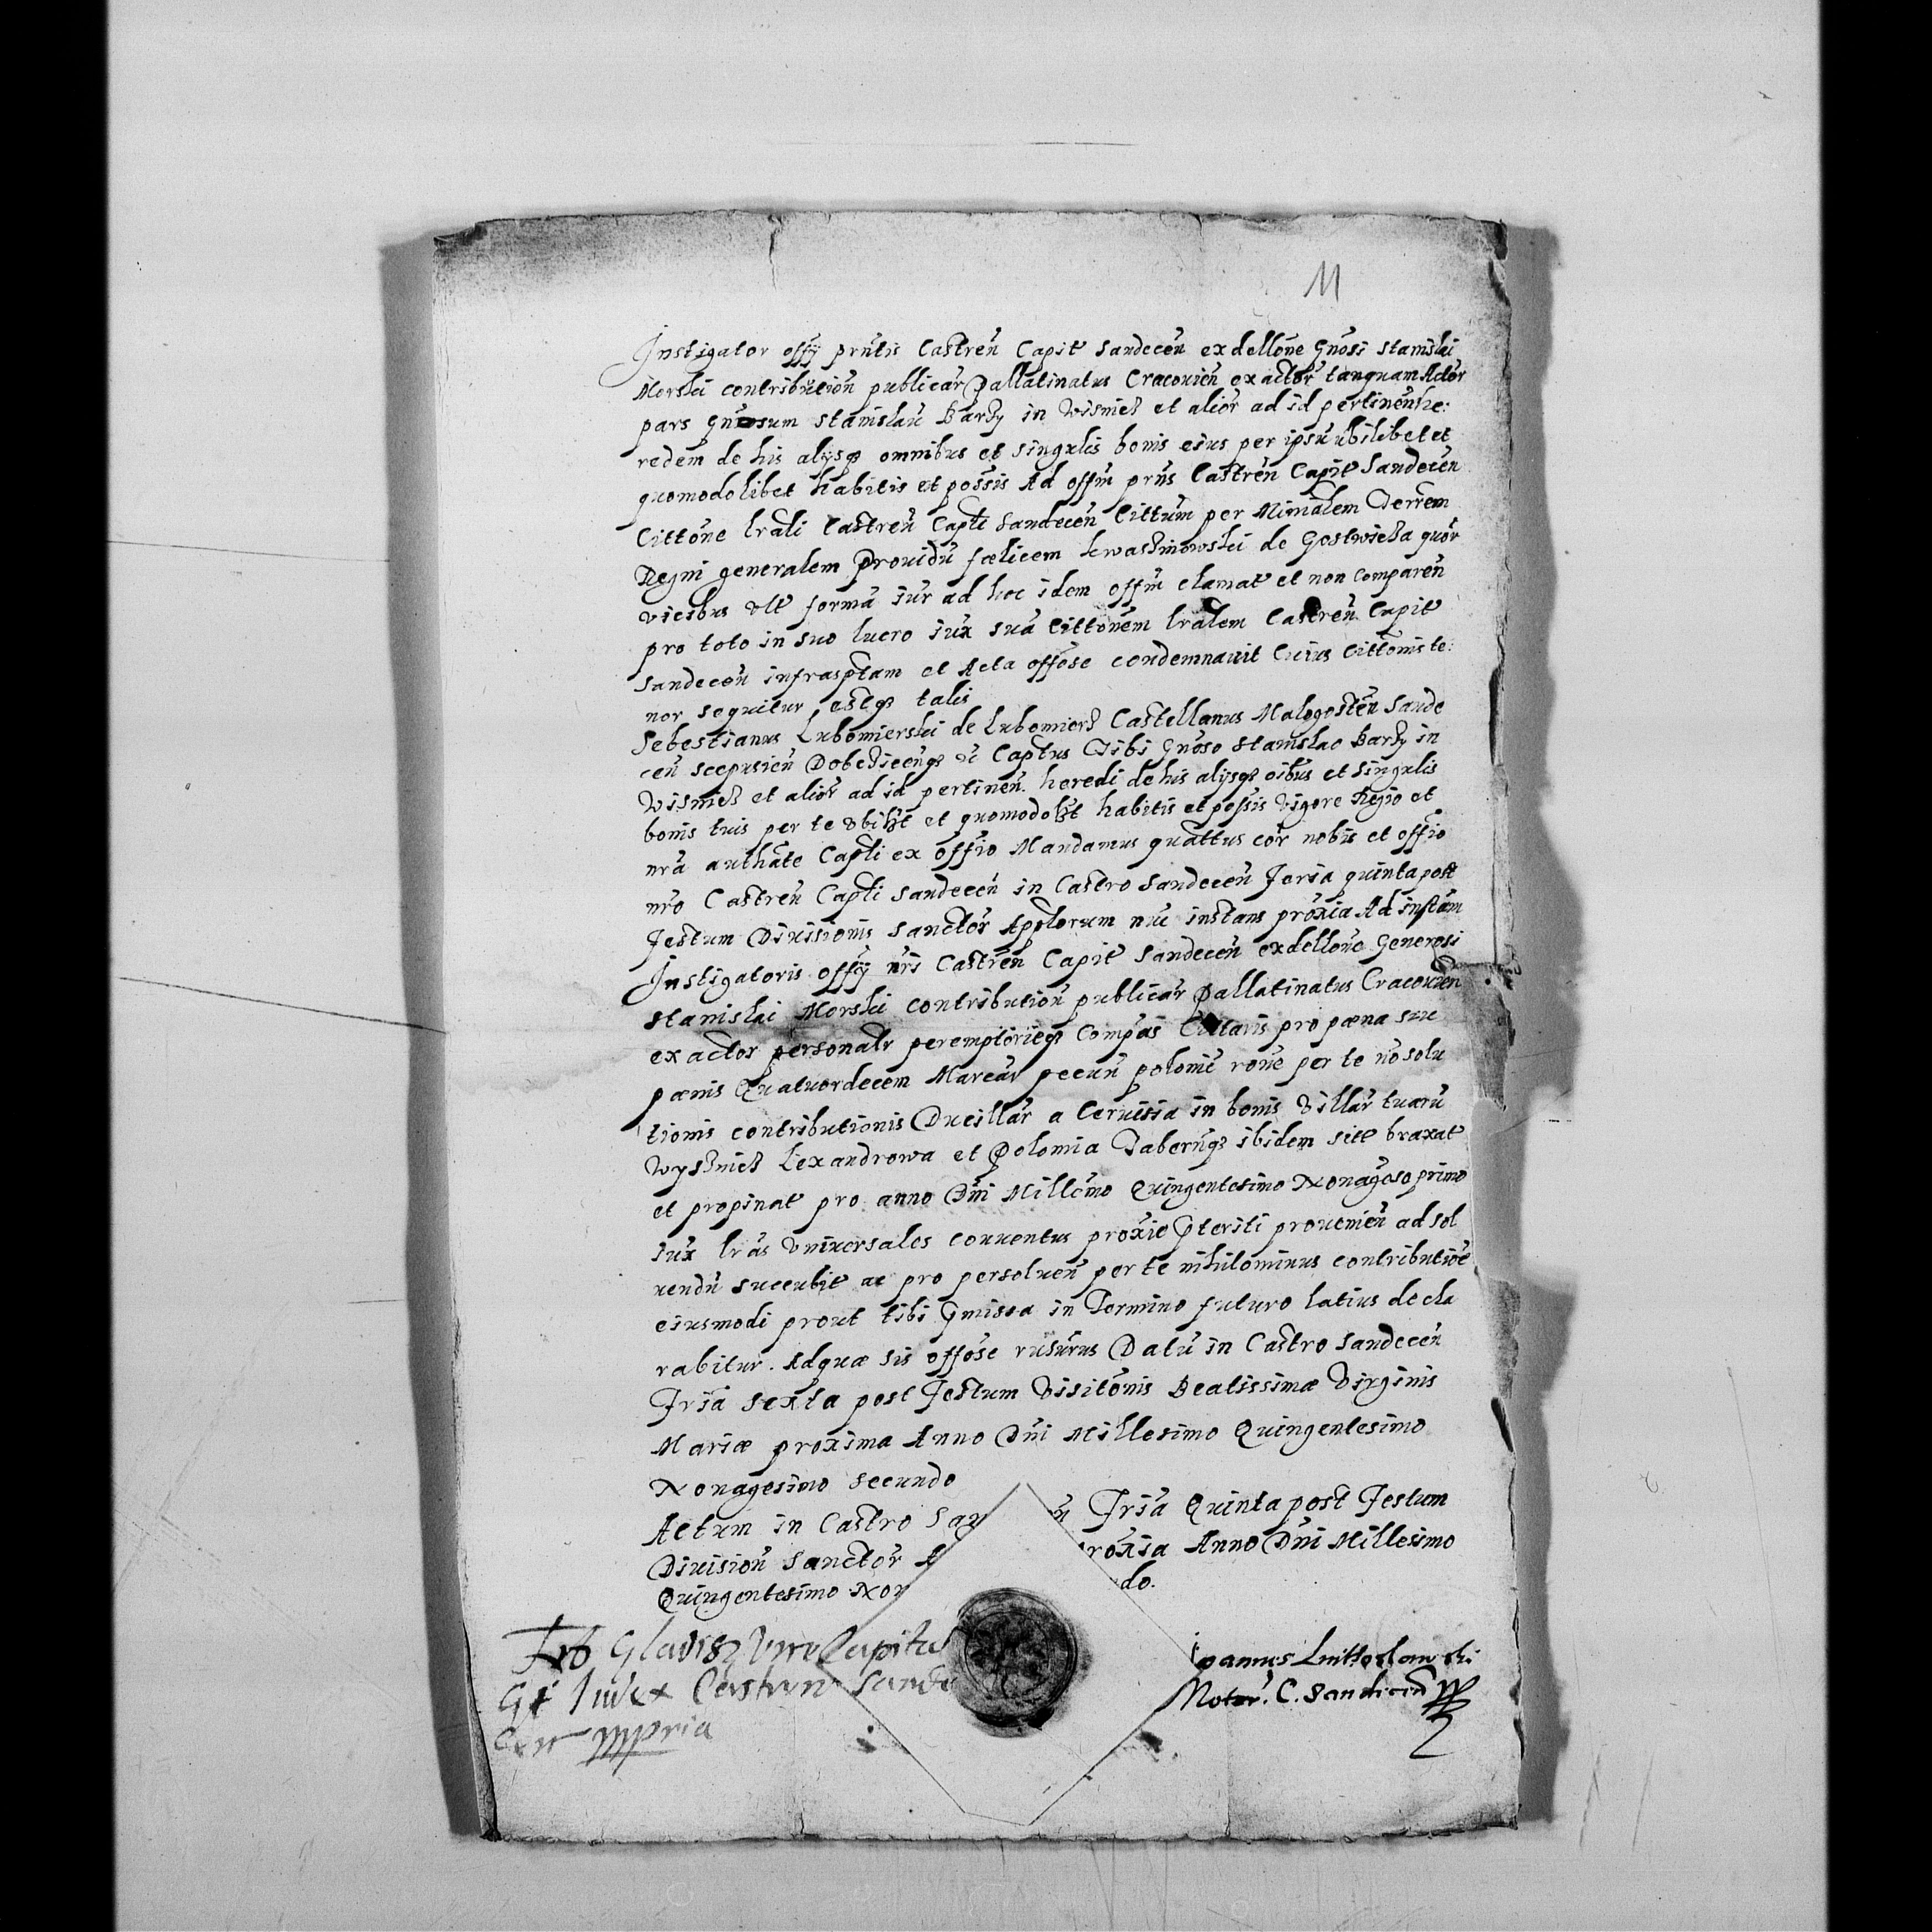 11
Instigator offÿ prntis Castren Capit Sandecen ex dellone Gnosi Stanislai
Morski contribution publicar Pallatinatus Cracouien exactor tanquam Actor
pars Gnosum Stanislau Barzy in Wisnicz et alior ad id pertinen he:
redem de his alijsq omnibus et singulis bonis eius per ipsu ubilibet et
quomodolibet habitis et possis Ad offm prns Castren Capit Sandecen
Cittone lrali Castren Capti Sandecen Cittum per Minialem Terrem
Regni generalem Prouidu foelicem de Gostwicza quor
vicibus vlt forma iur ad hoc idem offm clamat et non comparen
pro toto in suo lucro iux sua Cittonem lralem Castren Capit
Sandecen infrasptam et Acta offose condemnauit Cuius Cittonis te:
nor sequitur estq talis
Sebestianus Lubomierski de Lubomierz Castellanus Malogosten Sande
cen Scepusien Dobczicenq & Captus Tibi Gnoso Stanislao Barzy in
Wisnicz et alior ad id pertinen heredi de his alijsq oibus et singulis
bonis tuis per te vbilzt et quomodolzt habitis et possis Vigore Regio et
nra authate Capti ex offio Mandamus quattus cor nobis et offio
nro Castren Capti Sandecen in Castro Sandecen Feria quinta post
Festum Diuisionis Sanctor Applorum nuc instans proxia Ad instam
Instigatoris offÿ nri Castren Capit Sandecen ex dellone Generosi
Stanislai Morski contribution publicar Pallatinatus Cracouien
exactor personalr peremptorieq Compas Cittaris pro poena siu
poenis Quatuordecem Marcar pecun polonic rone per te no solu
tionis contributionis Ducillar a Ceruisia in bonis Villar tuaru
Wysznicz Lexandrowa et Polomia Tabernq ibidem sitt braxat
et propinat pro anno Dni Millemo Quingentesimo Nonagesoprimo
iux lras Vniuersales conuentus proxie pteriti prouenien ad sol
uendu succubit ac pro persoluen per te nihilominus contributioe
eiusmodi prout tibi pmissa in Termino futuro latius decla
rabitur. Adquae sis offose rusurus Datu in Castro Sandecen
Fria Sexta post Festum Visitonis Beatissimae Virginis
Mariae proxima Anno Dni Millesimo Quingentesimo
Nonagesimo secundo
Actum in Castro San n Fria Quinta post Festum
Diuision Sanctor A roxia Anno Dni Millesimo
Quingentesimo Non do.
Gladisz Vice Capita
Gt Iudex Castren Sande
mpria
Ioannes
Notar. C. Sandecen mp